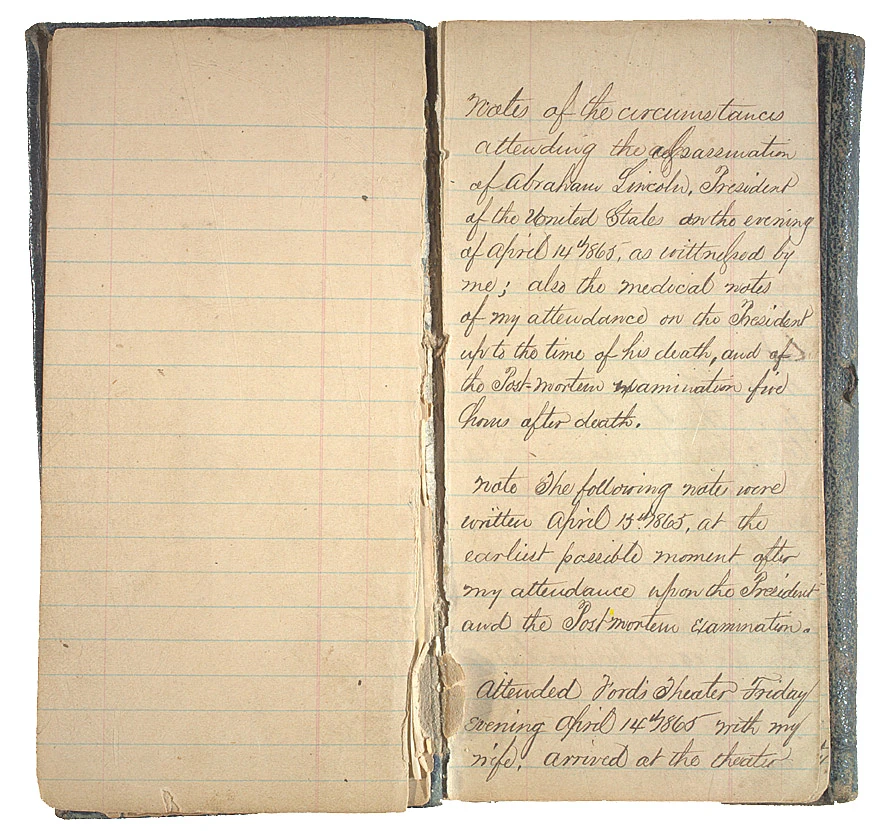 Notes of the circumstances
attending the assassination
of Abraham Lincoln, President
of the United States on the evening
of April 14th 1865, as wittnessed by
me; also the medical notes
of my attendance on the President
up to the time of his death, and of
the Post-mortem examination five
hours after death.
Note The following notes were
written April 15th 1865, at the
earliest possible moment after
my attendance upon the President
and the Postmortem Examination.
Attended Ford's Theater Friday
evening April 14th 1865 with my
wife, arrived at the theater